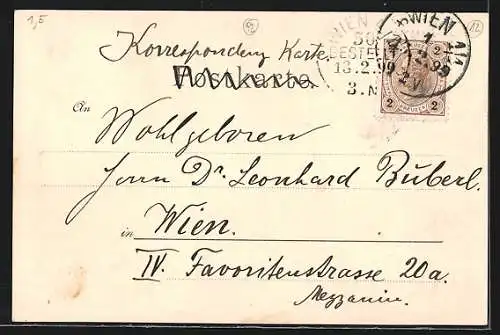 1,5
Korrespondenz Karte
Postkarte
WIEN
50
BESTELLT
13.2.99
3.N
WIEN
2 2
An
Wohlgeboren
Herrn Dr. Leonhard Büberl.
in Wien.
IV. Favoritenstrasse 20a.
Mezzanin.